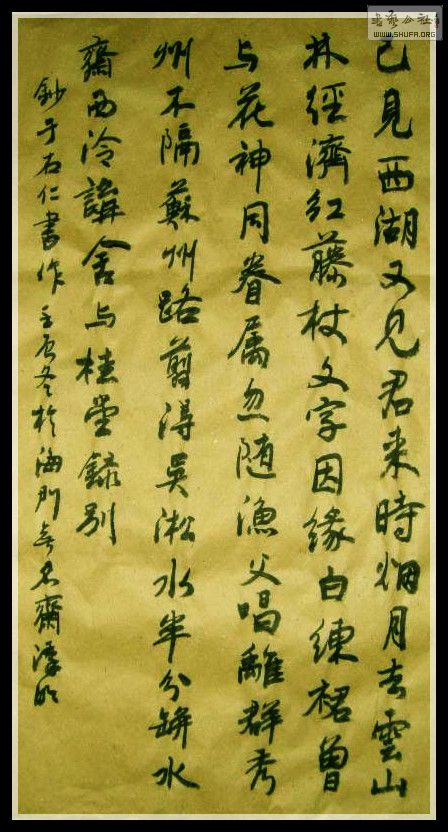 已見西湖又見君来時烟月去雲山
林經濟红藤杖文字因缘白練裙曾
与花神同眷属忽随漁父唱離群秀
州不隔蘇州路剪得吴淞水半分缾水
齋西泠講舍与桂堂録别
鈔于石仁書作 壬辰冬於海门無名齋
书艺公社
WWW.SHUFA.ORG